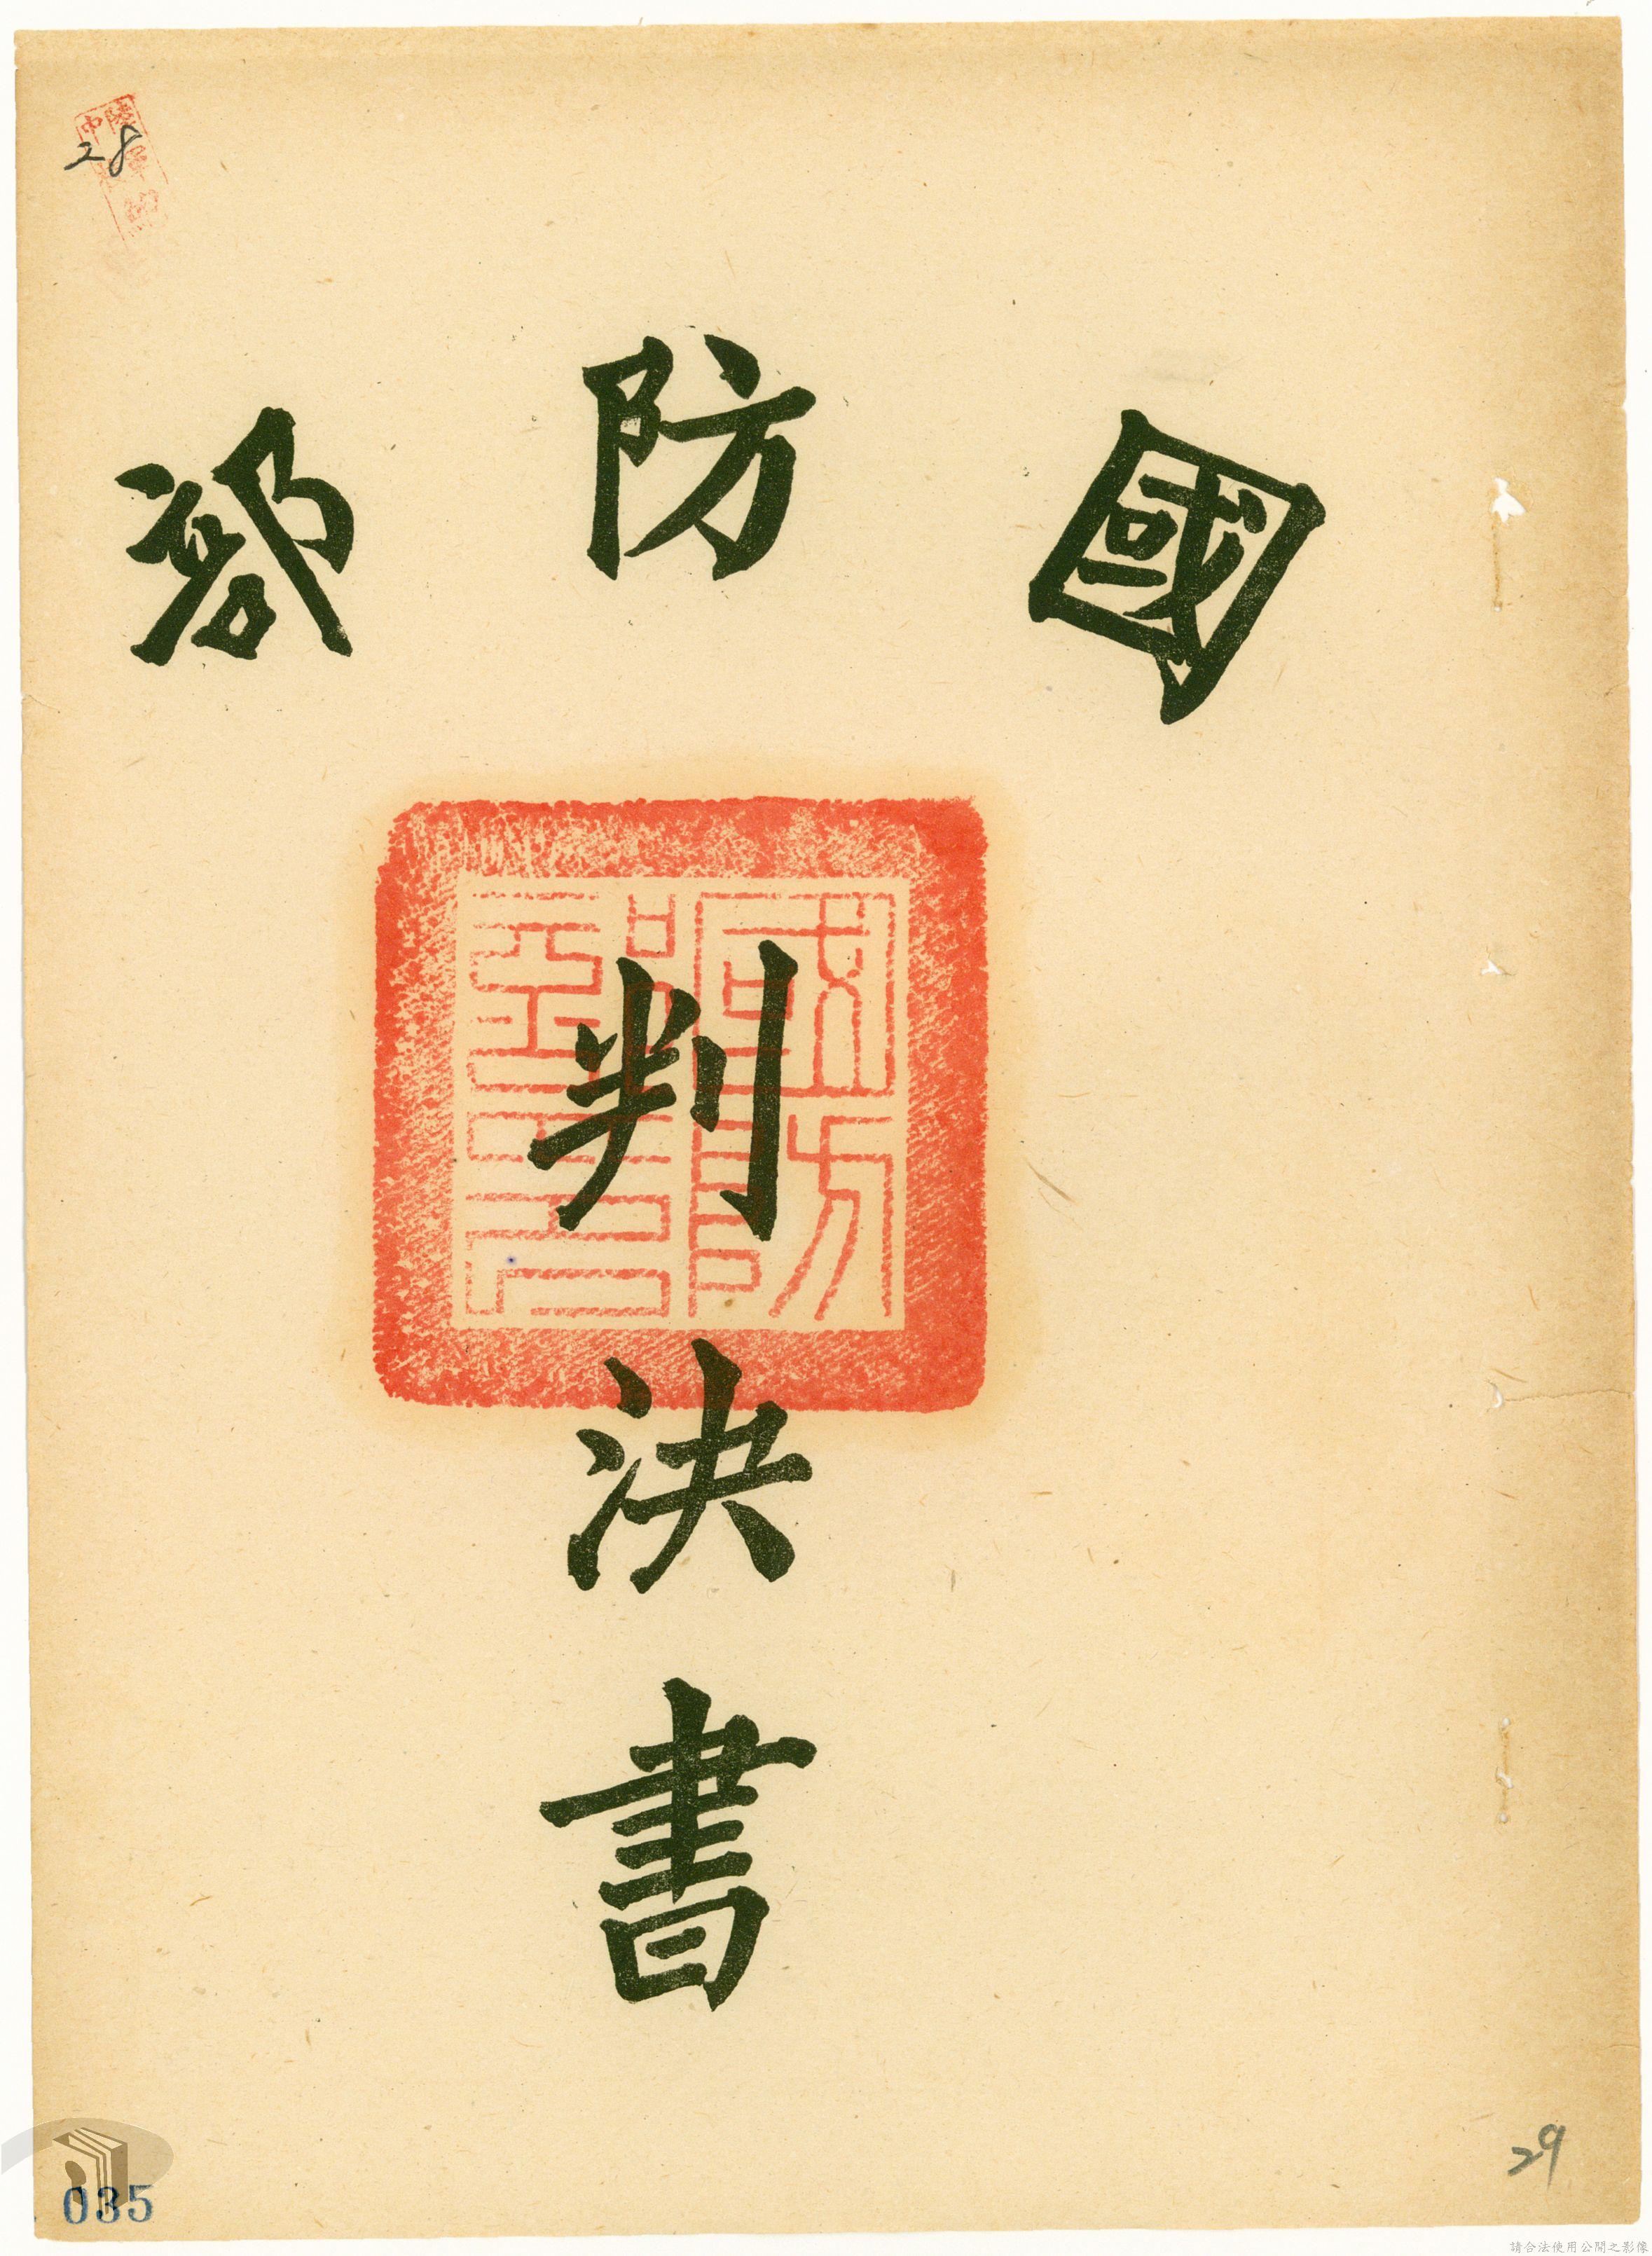 28
國防部
國防部印
判決書
29
035
請合法使用公開之影像